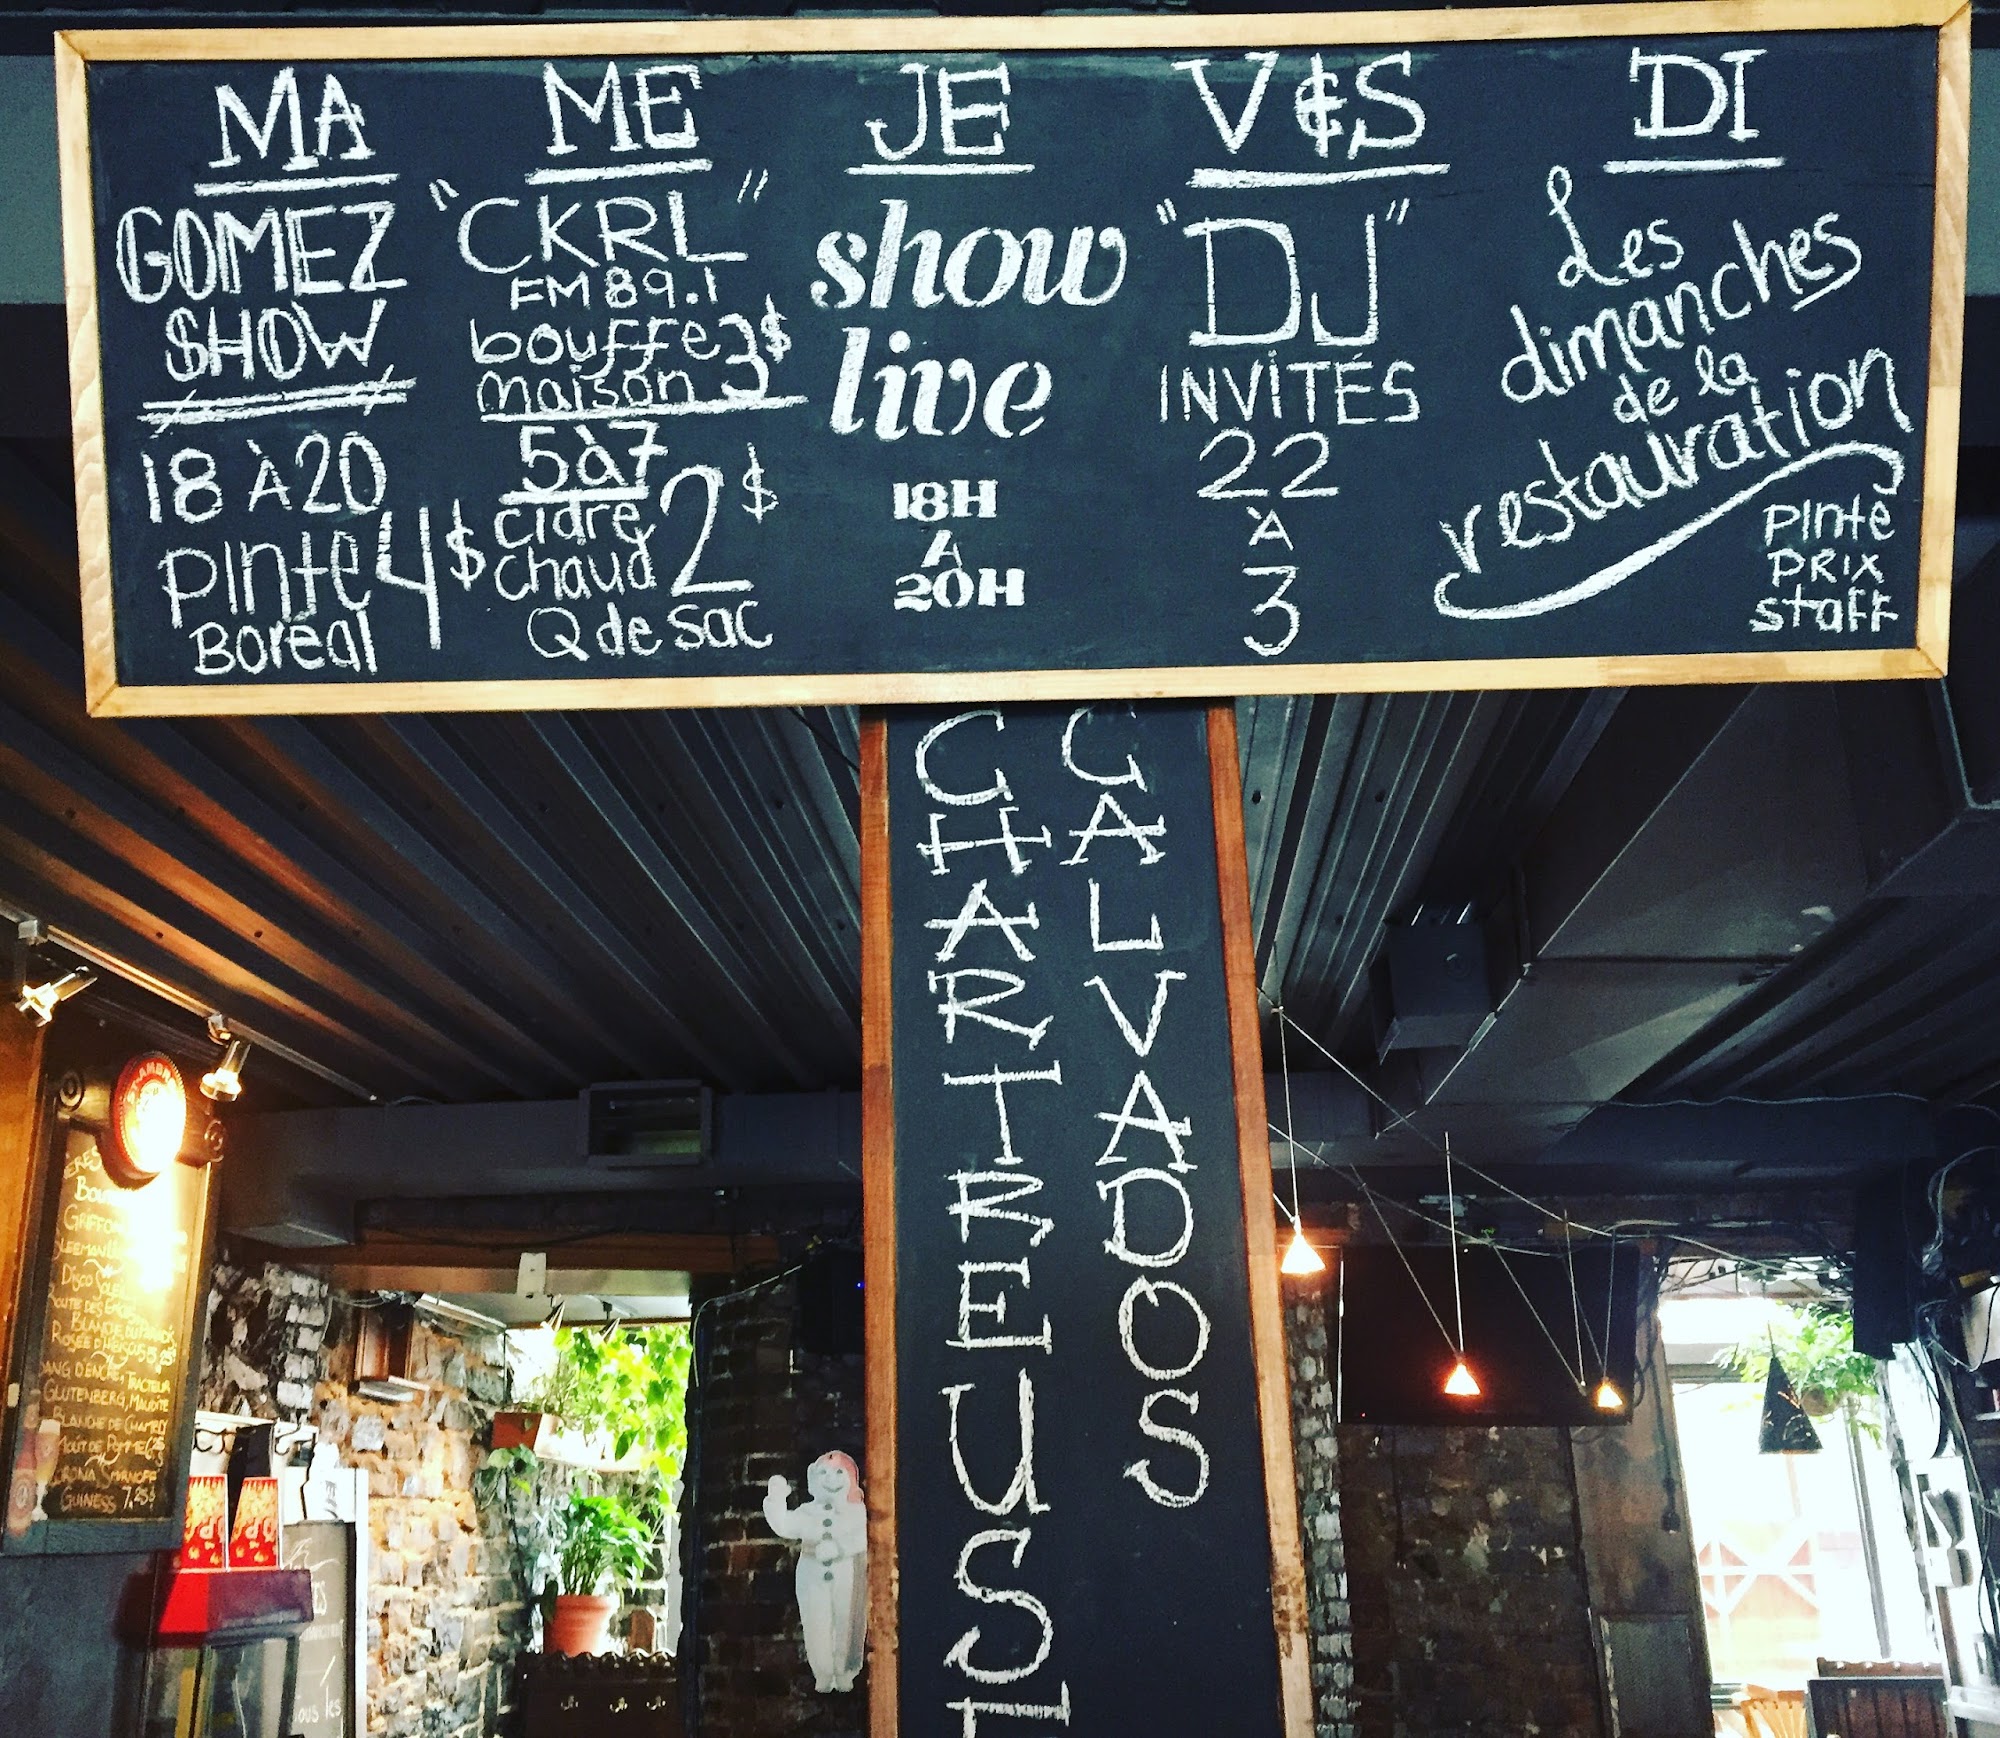 MA
GOMEZ
SHOW
18 À 20
PINTE 4$
BORÉAL
ME
"CKRL"
FM 89.1
bouffe 3$
maison
5 à 7
cidre 2$
chaud
Q de sac
JE
show
live
18H
À
20H
V & S
"DJ"
INVITÉS
22
À
3
DI
Les
dimanches
de la
restauration
PINTE
PRIX
STAFF
CHARTREUSE
CALVADOS
GRIFFON
SLEEMAN
DISCO SOLEIL
BLANCHE DU PARADIS
ROSÉE D'HIBISCUS 5,25$
GLUTENBERG, MAUDITE
BLANCHE DE CHAMBLY
MOÛT DE POMME
SMIRNOFF
GUINESS 7,25$